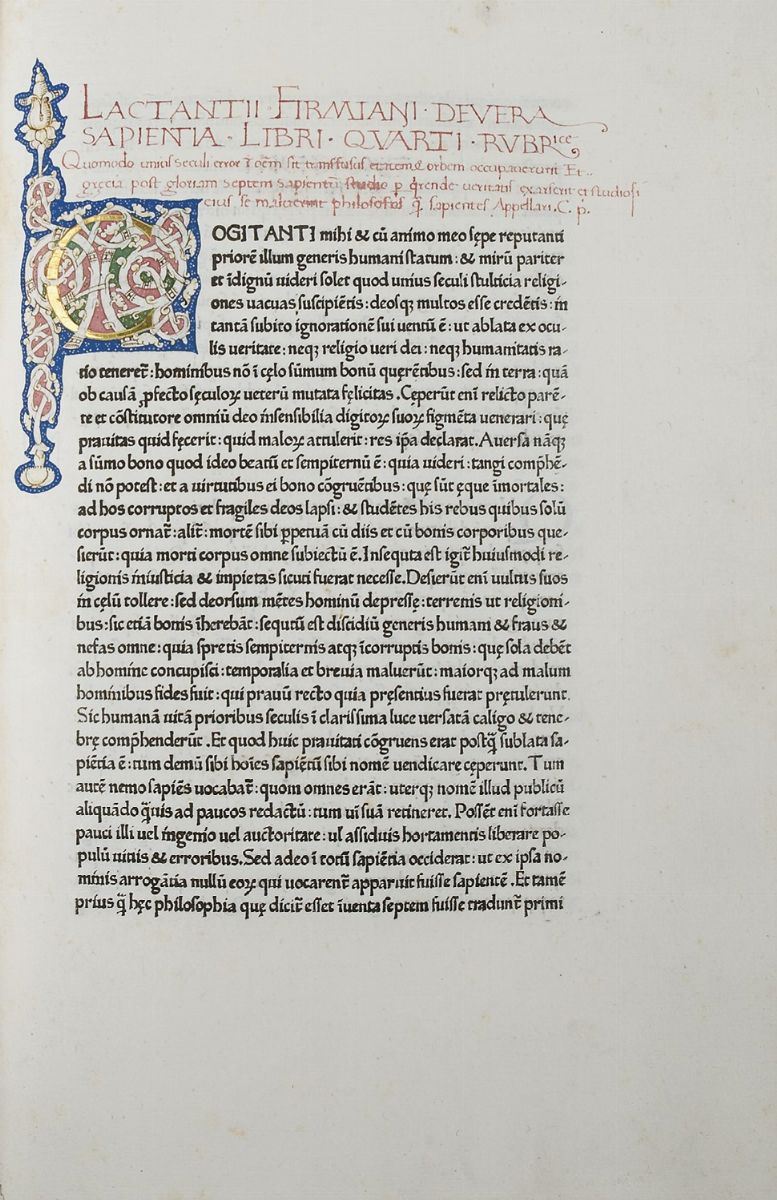 LACTANTII · FIRMIANI · DE VERA
SAPIENTIA · LIBRI · QVARTI · RVBRICE
Quomodo unius seculi error ĩ oẽm sit transfusus orbem occupauerunt Et
grecia post gloriam septem sapientũ studio ꝑ querende ueritatis exarserit et studiosi
eius se maluerint philosofos q̃ sapientes Appellari. C. p.
COGITANTI mihi & cũ animo meo sępe reputanti
priorẽ illum generis humani statum : & mirũ pariter
et ĩdignũ uideri solet quod unius seculi stulticia religi-
ones uacuas suscipiẽtis : deosqꝫ multos esse credẽtis : in
tantã subito ignorationẽ sui uentũ ẽ : ut ablata ex ocu-
lis ueritate : neqꝫ religio ueri dei : neqꝫ humanitatis ra-
tio teneret̃ : hominibus nõ ĩ cęlo sũmum bonũ quęrẽtibus : sed in terra : quã
ob causã ꝓfecto sęculoꝝ ueterũ mutata fęlicitas . Cęperũt enĩ relicto parẽ-
te et cõstitutore omniũ deo insensibilia digitoꝝ suoꝝ figmẽta uenerari : quę
prauitas quid fęcerit : quid maloꝝ attulerit : res ip̃a declarat. Auersa nãqꝫ
a sũmo bono quod ideo beatũ et sempiternũ ẽ : quia uideri : tangi comp̃hẽ-
di nõ potest : et a uirtutibus ei bono cõgruẽtibus : quę sũt ęque ĩmortales :
ad hos corruptos et fragiles deos lapsi : & studẽtes his rebus quibus solũ
corpus ornat̃ : alit̃ : mortẽ sibi ꝑpetuã cũ diis et cũ bonis corporibus que-
sierũt : quia morti corpus omne subiectũ ẽ. Insequta est igit̃ huiusmodi re-
ligionis iniusticia & impietas sicuti fuerat necesse. Desierũt enĩ uultus suos
in cęlũ tollere : sed deorsum mẽtes hominũ depressę : terrenis ut religioni-
bus : sic etiã bonis ĩherebãt : sequtũ est discidiũ generis humani & fraus &
nefas omne : quia spretis sempiternis atqꝫ ĩcorruptis bonis : quę sola debẽt
ab homine concupisci : temporalia et breuia maluerũt : maiorqꝫ ad malum
hominibus fides fuit : qui prauũ recto quia pręsentius fuerat prętulerunt.
Sic humanã uitã prioribus seculis ĩ clarissima luce uersatã caligo & tene-
brę comp̃henderũt . Et quod huic prauitati cõgruens erat postq̃ sublata sa-
piẽtia ẽ : tum demũ sibi hoĩes sapiẽtũ sibi nomẽ uendicare cęperunt. Tum
autẽ nemo sapiẽs uocabat̃ : quom omnes erãt : uterqꝫ nomẽ illud publicũ
aliquãdo q̃uis ad paucos redactũ : tum uĩ suã retineret. Possẽt enĩ fortasse
pauci illi uel ingenio uel auctoritate : ul̃ assiduis hortamentis liberare po-
pulũ uitiis & erroribus. Sed adeo ĩ totũ sapiẽtia occiderat : ut ex ipsa no-
minis arrogãtia nullũ eoꝝ qui uocarent̃ apparuit fuisse sapientẽ . Et tamẽ
prius q̃ hęc philosophia quę dicit̃ esset ĩuenta septem fuisse tradunt̃ primi